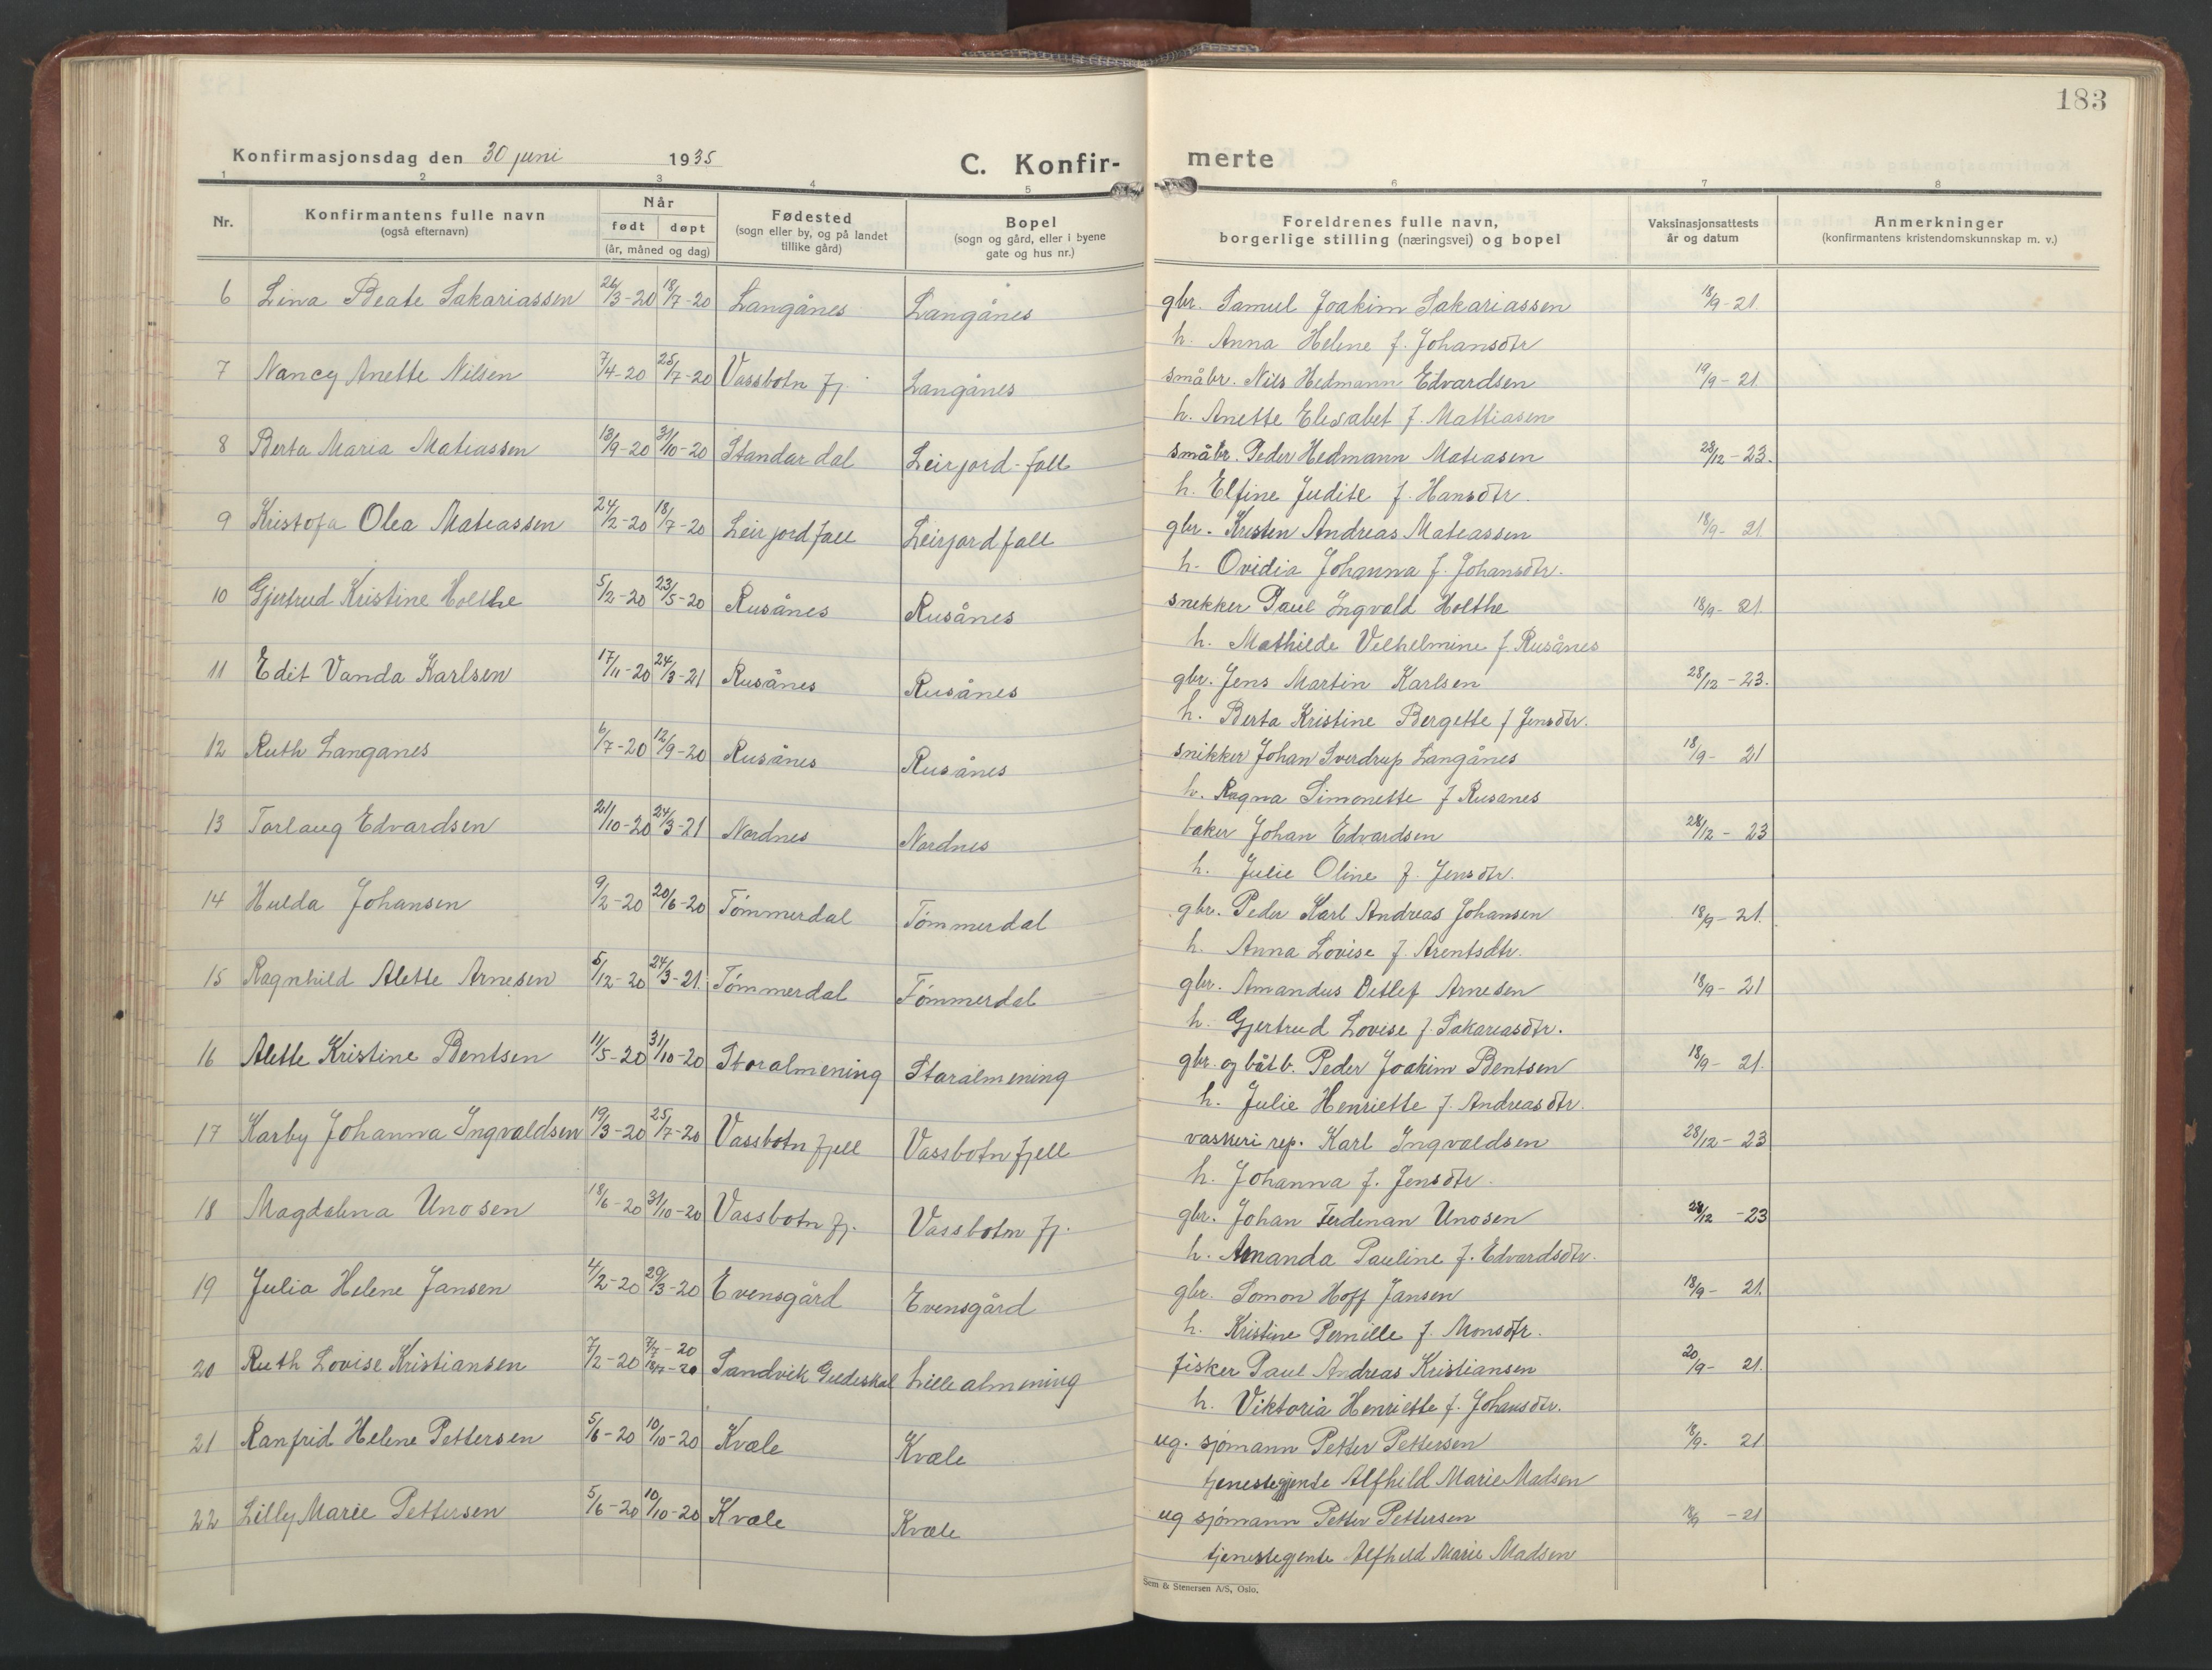 183
Konfirmasjonsdag den 30 juni 1935 C. Konfir- merte
1 2 3 4 5 6 7 8
Nr. Konfirmantens fulle navn (også efternavn) Når født døpt (år, måned og dag) Fødested (sogn eller by, og på landet tillike gård) Bopel (sogn og gård, eller i byene gate og hus nr.) Foreldrenes fulle navn, borgerlige stilling (næringsvei) og bopel Vaksinasjonsattests år og datum Anmerkninger (konfirmantens kristendomskunnskap m. v.)
6 Lina Beate Sakariassen 26/3-20 18/7-20 Langånes Langånes gbr. Samul Joakim Sakariassen 18/9-21.
h. Anna Helene f. Johansdtr
7 Nancy Anette Nilsen 7/4-20 25/7-20 Vassbotn fj. Langånes småbr. Nils Hedmann Edvardsen 19/9-21.
h. Anette Elisabet f. Mattiasen
8 Berta Maria Matiassen 13/9-20 31/10-20 Standardal Leirjord-fall småbr. Peder Hedmann Matiasen 28/12-23.
h. Elfine Judite f. Hansdtr.
9 Kristofa Olea Matiassen 24/2-20 18/7-20 Leirjordfall Leirjordfall gbr. Kristen Andreas Matiassen 18/9-21
h. Ovidia Johanna f. Johansdtr.
10 Gjertrud Kristine Holthe 5/2-20 23/5-20 Rusånes Rusånes snekker Paul Ingvald Holthe 18/9-21.
h. Mathilde Vilhelmine f. Rusånes
11 Edit Vanda Karlsen 17/11-20 24/3-21 Rusånes Rusånes gbr. Jens Martin Karlsen 28/12-23.
h. Berta Kristine Bergette f Jensdtr.
12 Ruth Langanes 6/7-20 12/9-20 Rusånes Rusånes snikker Johan Sverdrup Langånes 18/9-21
h. Ragna Simonette f Rusanes
13 Torlaug Edvardsen 21/10-20 24/3-21 Nordnes Nordnes baker Johan Edvardsen 28/12-23
h. Julie Oline f. Jensdtr.
14 Hulda Johansen 9/2-20 20/6-20 Tømmerdal Tømmerdal gbr. Peder Karl Andreas Johansen 18/9-21.
h. Anna Lovise f. Arentsdtr.
15 Ragnhild Alette Arnesen 5/12-20 24/3-21. Tømmerdal Tømmerdal gbr. Amandus Detlef Arnesen 18/9-21
h. Gjertrud Lovise f. Sakariasdtr.
16 Alette Kristine Bentsen 11/5-20 31/10-20 Storalmening Storalmening gbr. og båtb. Peder Joakim Bentsen 18/9-21.
h. Julie Henriette f. Andreasdtr.
17 Karby Johanna Ingvaldsen 19/3-20 25/7-20 Vassbotnfjell Vassbotnfjell vaskeri rep. Karl Ingvaldsen 28/12-23
h. Johanna f. Jensdtr.
18 Magdalena Unosen 18/6-20 31/10-20 Vassbotn fj. Vassbotn fj. gbr. Johan Ferdinan Unosen 28/12-23
h. Amanda Pauline f. Edvardsdtr.
19 Julia Helene Jansen 4/2-20 29/3-20 Evensgård Evensgård gbr. Somon Hoff Jansen 18/9-21.
h. Kristine Pernille f. Monsdtr.
20 Ruth Lovise Kristiansen 7/2-20 7/7-20 Sandvik Gildeskål Lillealmening fisker Paul Andreas Kristiansen 20/9-21.
h. Viktoria Henriette f. Johansdtr.
21 Ranfrid Helene Pettersen 5/6-20 10/10-20 Kvæle Kvæle ug. sjømann Petter Pettersen 18/9-21
tjenestegjente Alfhild Marie Madsen
22 Lilly Marie Pettersen 5/6-20 10/10-20 Kvæle Kvæle ug sjømann Petter Pettersen 18/9-21
tjenestegjente Alfhild Marie Madsen
Sem & Stenersen A/S, Oslo.